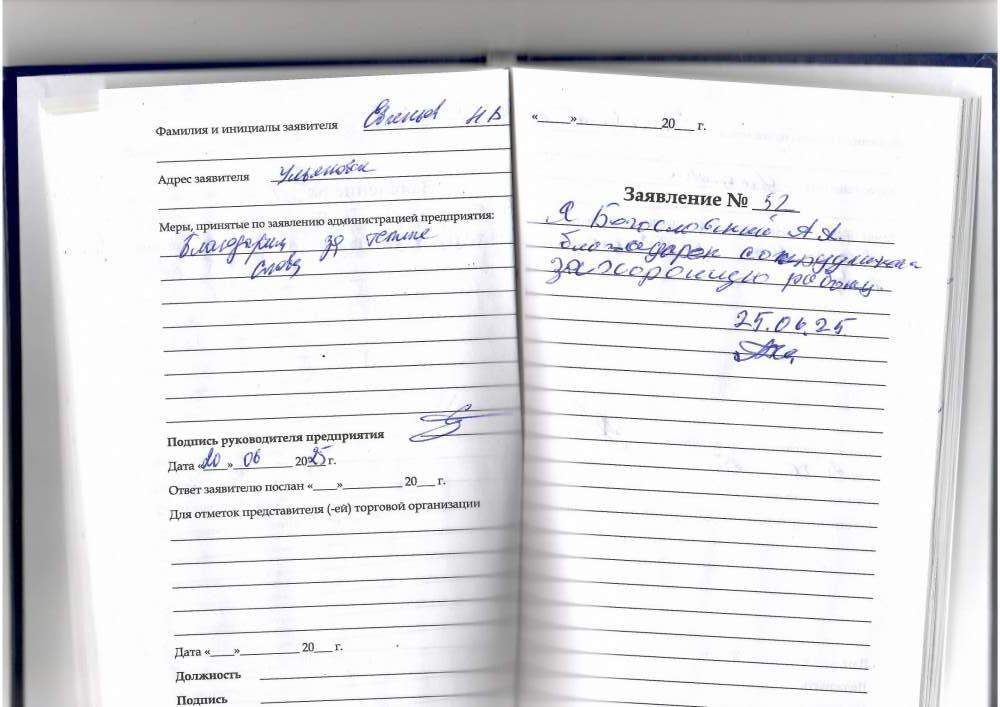 Фамилия и инициалы заявителя Свенцов НВ
Адрес заявителя Ульяновск
Меры, принятые по заявлению администрацией предприятия:
Благодарим за теплые
слова
Подпись руководителя предприятия
Дата «20» 06 2025 г.
Ответ заявителю послан «____»__________ 20___ г.
Для отметок представителя (-ей) торговой организации
Дата «____»__________ 20___ г.
Должность
Подпись
«_____»_____________ 20___ г.
Заявление № 52
Я Богословский А А.
благодарен сотрудникам
за хорошую работу.
25.06.25